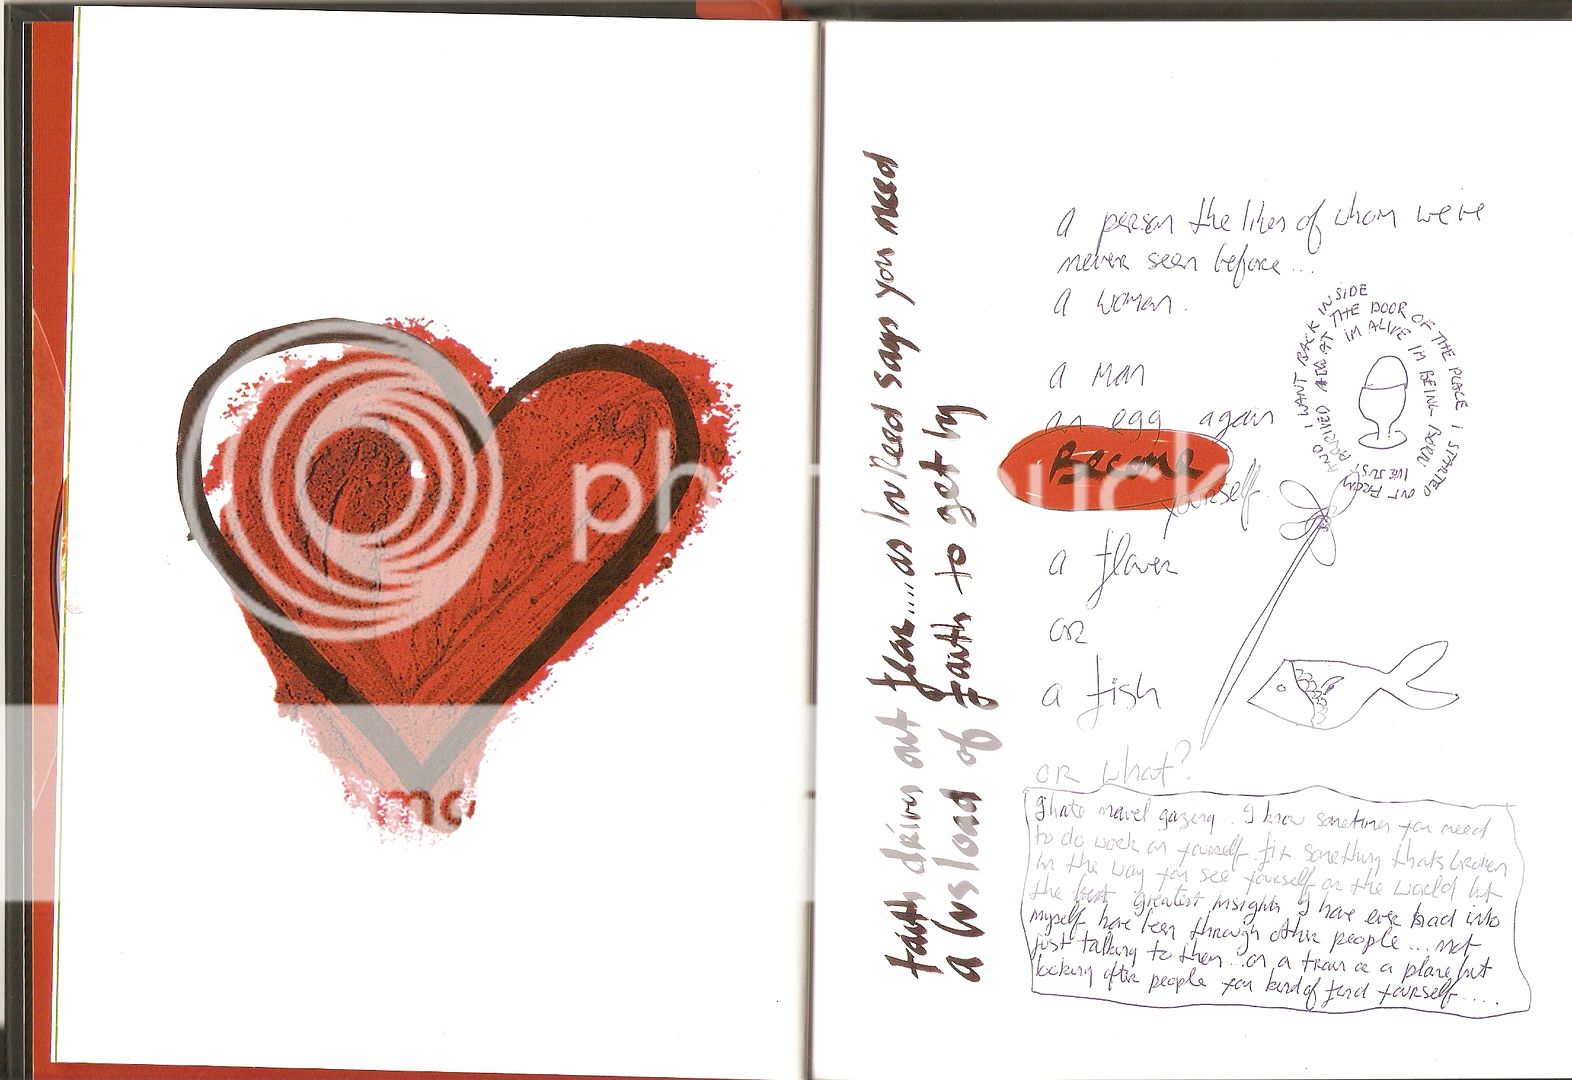 faith drives out fear.....as lou Reed says you need
a busload of faith to get by
a person the likes of whom we've
never seen before...
a woman.
a man
an egg again
Become
yourself.
a flower
or
a fish
or what?
AND I WANT BACK INSIDE
ARRIVED AT THE DOOR OF THE PLACE I STARTED
OUT FROM
IM ALIVE IM BEING BORN
I hate navel gazing. I know sometimes you need
to do work on yourself. fix something thats broken
in the way you see yourself or the world but
the greatest insights I have ever had into
myself have been through other people... not
just talking to them...on a train or a plane but
looking after people you kind of find yourself.....
photobucket